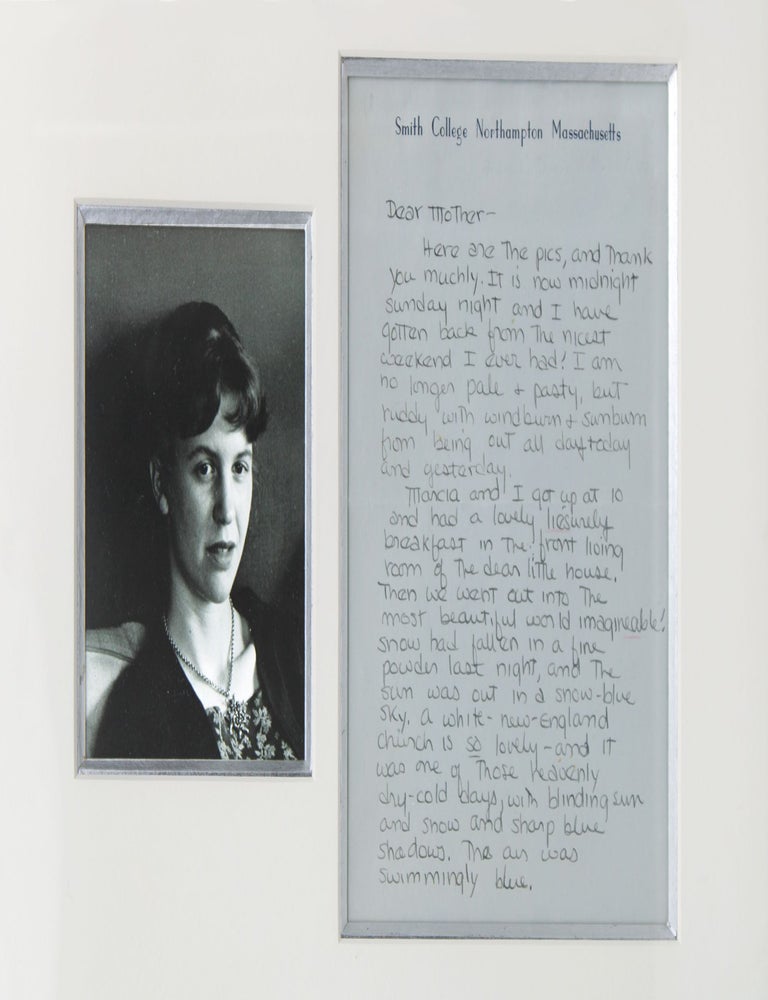 Smith College Northampton Massachusetts
Dear Mother-
Here are the pics, and Thank
you muchly. It is now midnight
sunday night and I have
gotten back from The nicest
weekend I ever had! I am
no longer pale & pasty, but
ruddy with windburn & sunburn
from being out all day today
and yesterday.
Marcia and I got up at 10
and had a lovely liesurely
breakfast in The front living
room of The dear little house.
Then we went out into The
most beautiful world imagineable!
snow had fallen in a fine
powder last night, and The
sun was out in a snow-blue
sky. a white-new-England
church is so lovely - and it
was one of Those heavenly
dry-cold days, with blinding sun
and snow and sharp blue
shadows. The air was
swimmingly blue.